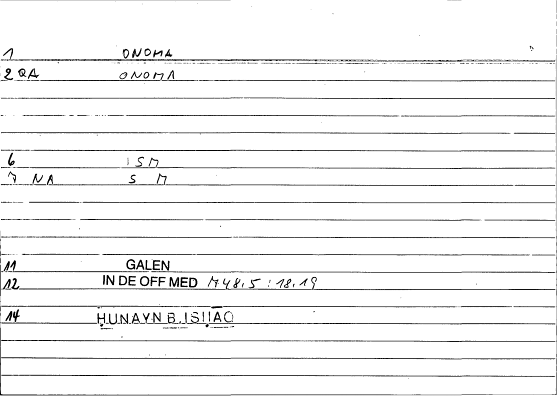 1 ONOMA
2 QA ONOMA
6 ISM
7 NA S M
11 GALEN
12 IN DE OFF MED M48.5 : 18.19
14 ḤUNAYN B. ISḤAQ